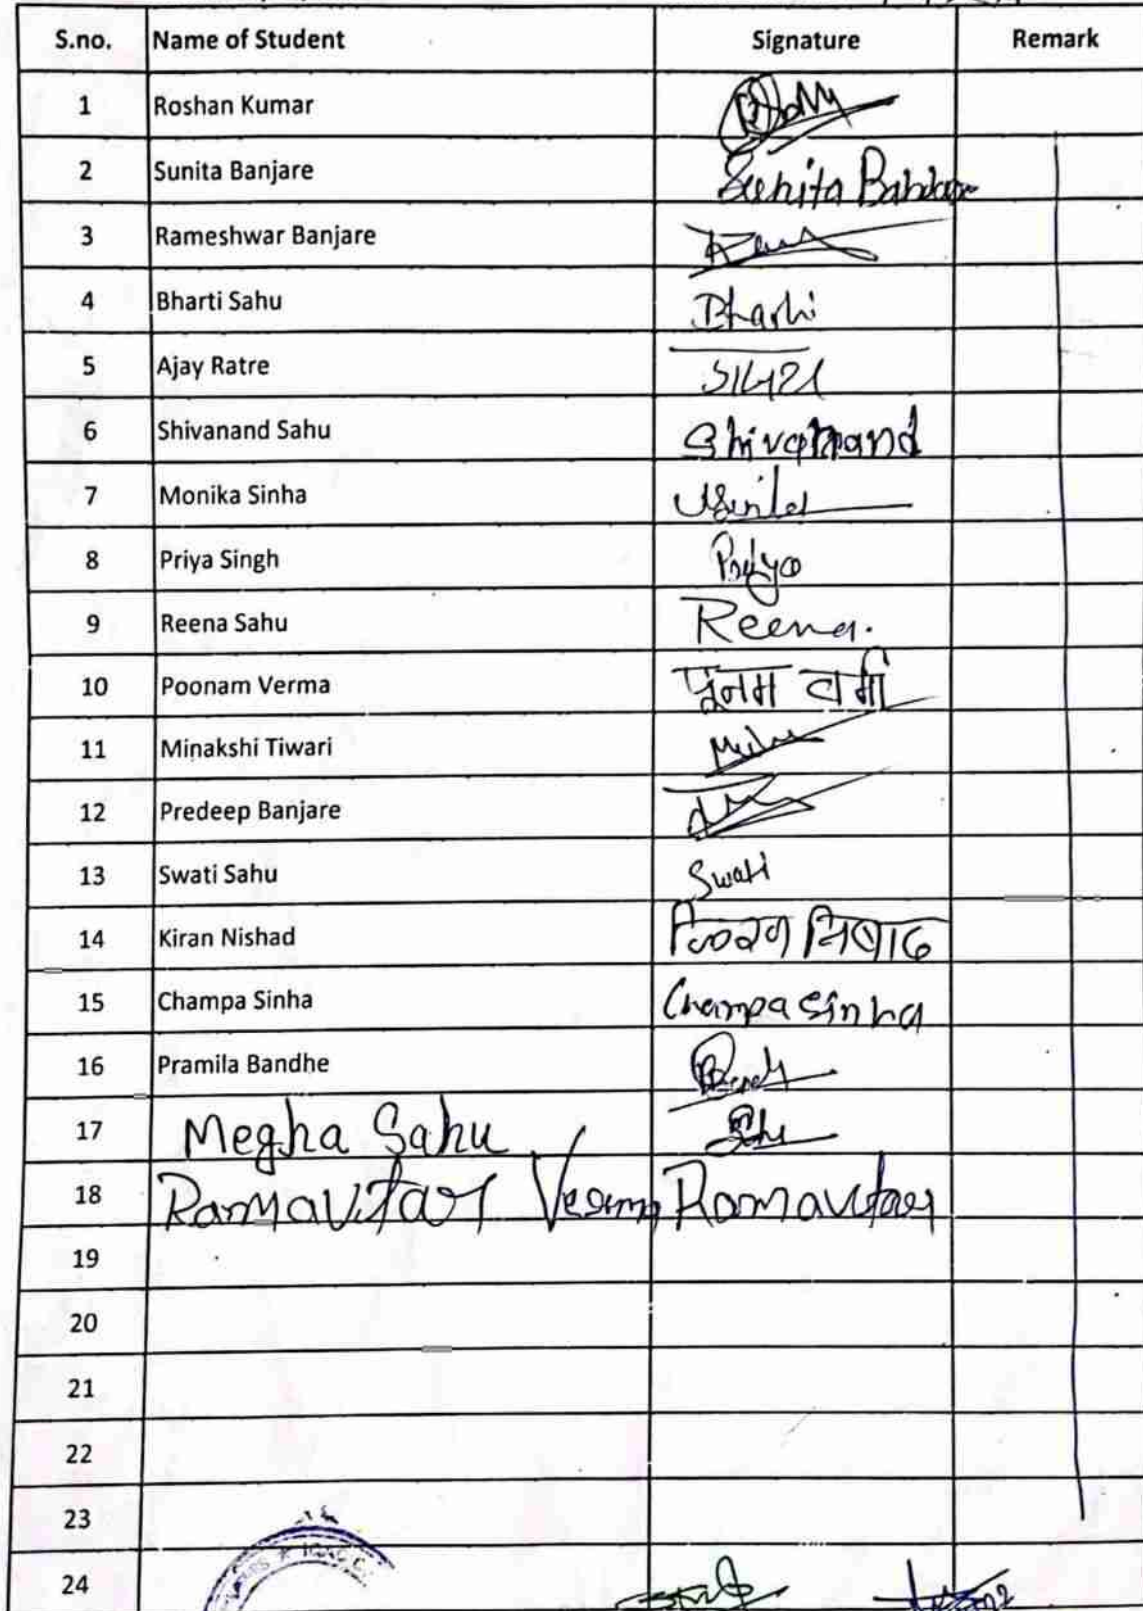 S.no. Name of Student Signature Remark
1 Roshan Kumar
2 Sunita Banjare Sunita
3 Rameshwar Banjare
4 Bharti Sahu Bharti
5 Ajay Ratre
6 Shivanand Sahu Shivanand
7 Monika Sinha
8 Priya Singh
9 Reena Sahu Reena.
10 Poonam Verma पुनम वर्मा
11 Minakshi Tiwari
12 Predeep Banjare
13 Swati Sahu Swati
14 Kiran Nishad किरण निषाद
15 Champa Sinha Champa Sinha
16 Pramila Bandhe
17 Megha Sahu
18 Ramavtar Verma Ramavtar
19
20
21
22
23
24